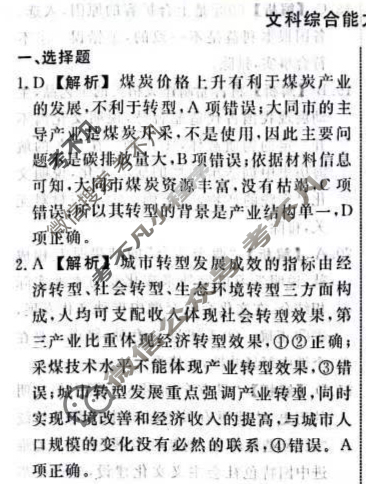 文科综合能
一、选择题
1. D 【解析】 煤炭价格上升有利于煤炭产业
的发展,不利于转型,A 项错误;大同市的主
导产业是煤炭开采,不是使用,因此主要问
题不是碳排放量大,B 项错误;依据材料信息
可知,大同市煤炭资源丰富,没有枯竭,C 项
错误;所以其转型的背景是产业结构单一,D
项正确。
2. A 【解析】 城市转型发展成效的指标由经
济转型、社会转型、生态环境转型三方面构
成,人均可支配收入体现社会转型效果,第
三产业比重体现经济转型效果,①②正确;
采煤技术水平不能体现产业转型效果,③错
误;城市转型发展重点强调产业转型,同时
实现环境改善和经济收入的提高,与城市人
口规模的变化没有必然的联系,④错误。A
项正确。